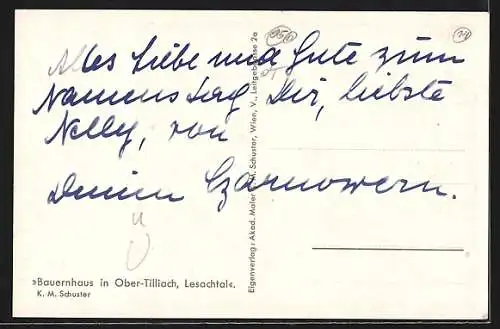 Alles Liebe und Gute zum
Namenstag Dir, liebste
Nelly, von
Deinen Czarnowern.
»Bauernhaus in Ober-Tilliach, Lesachtal«.
K. M. Schuster
Eigenverlag: Akad. Maler K. M. Schuster, Wien, V., Leitgebgasse 2a